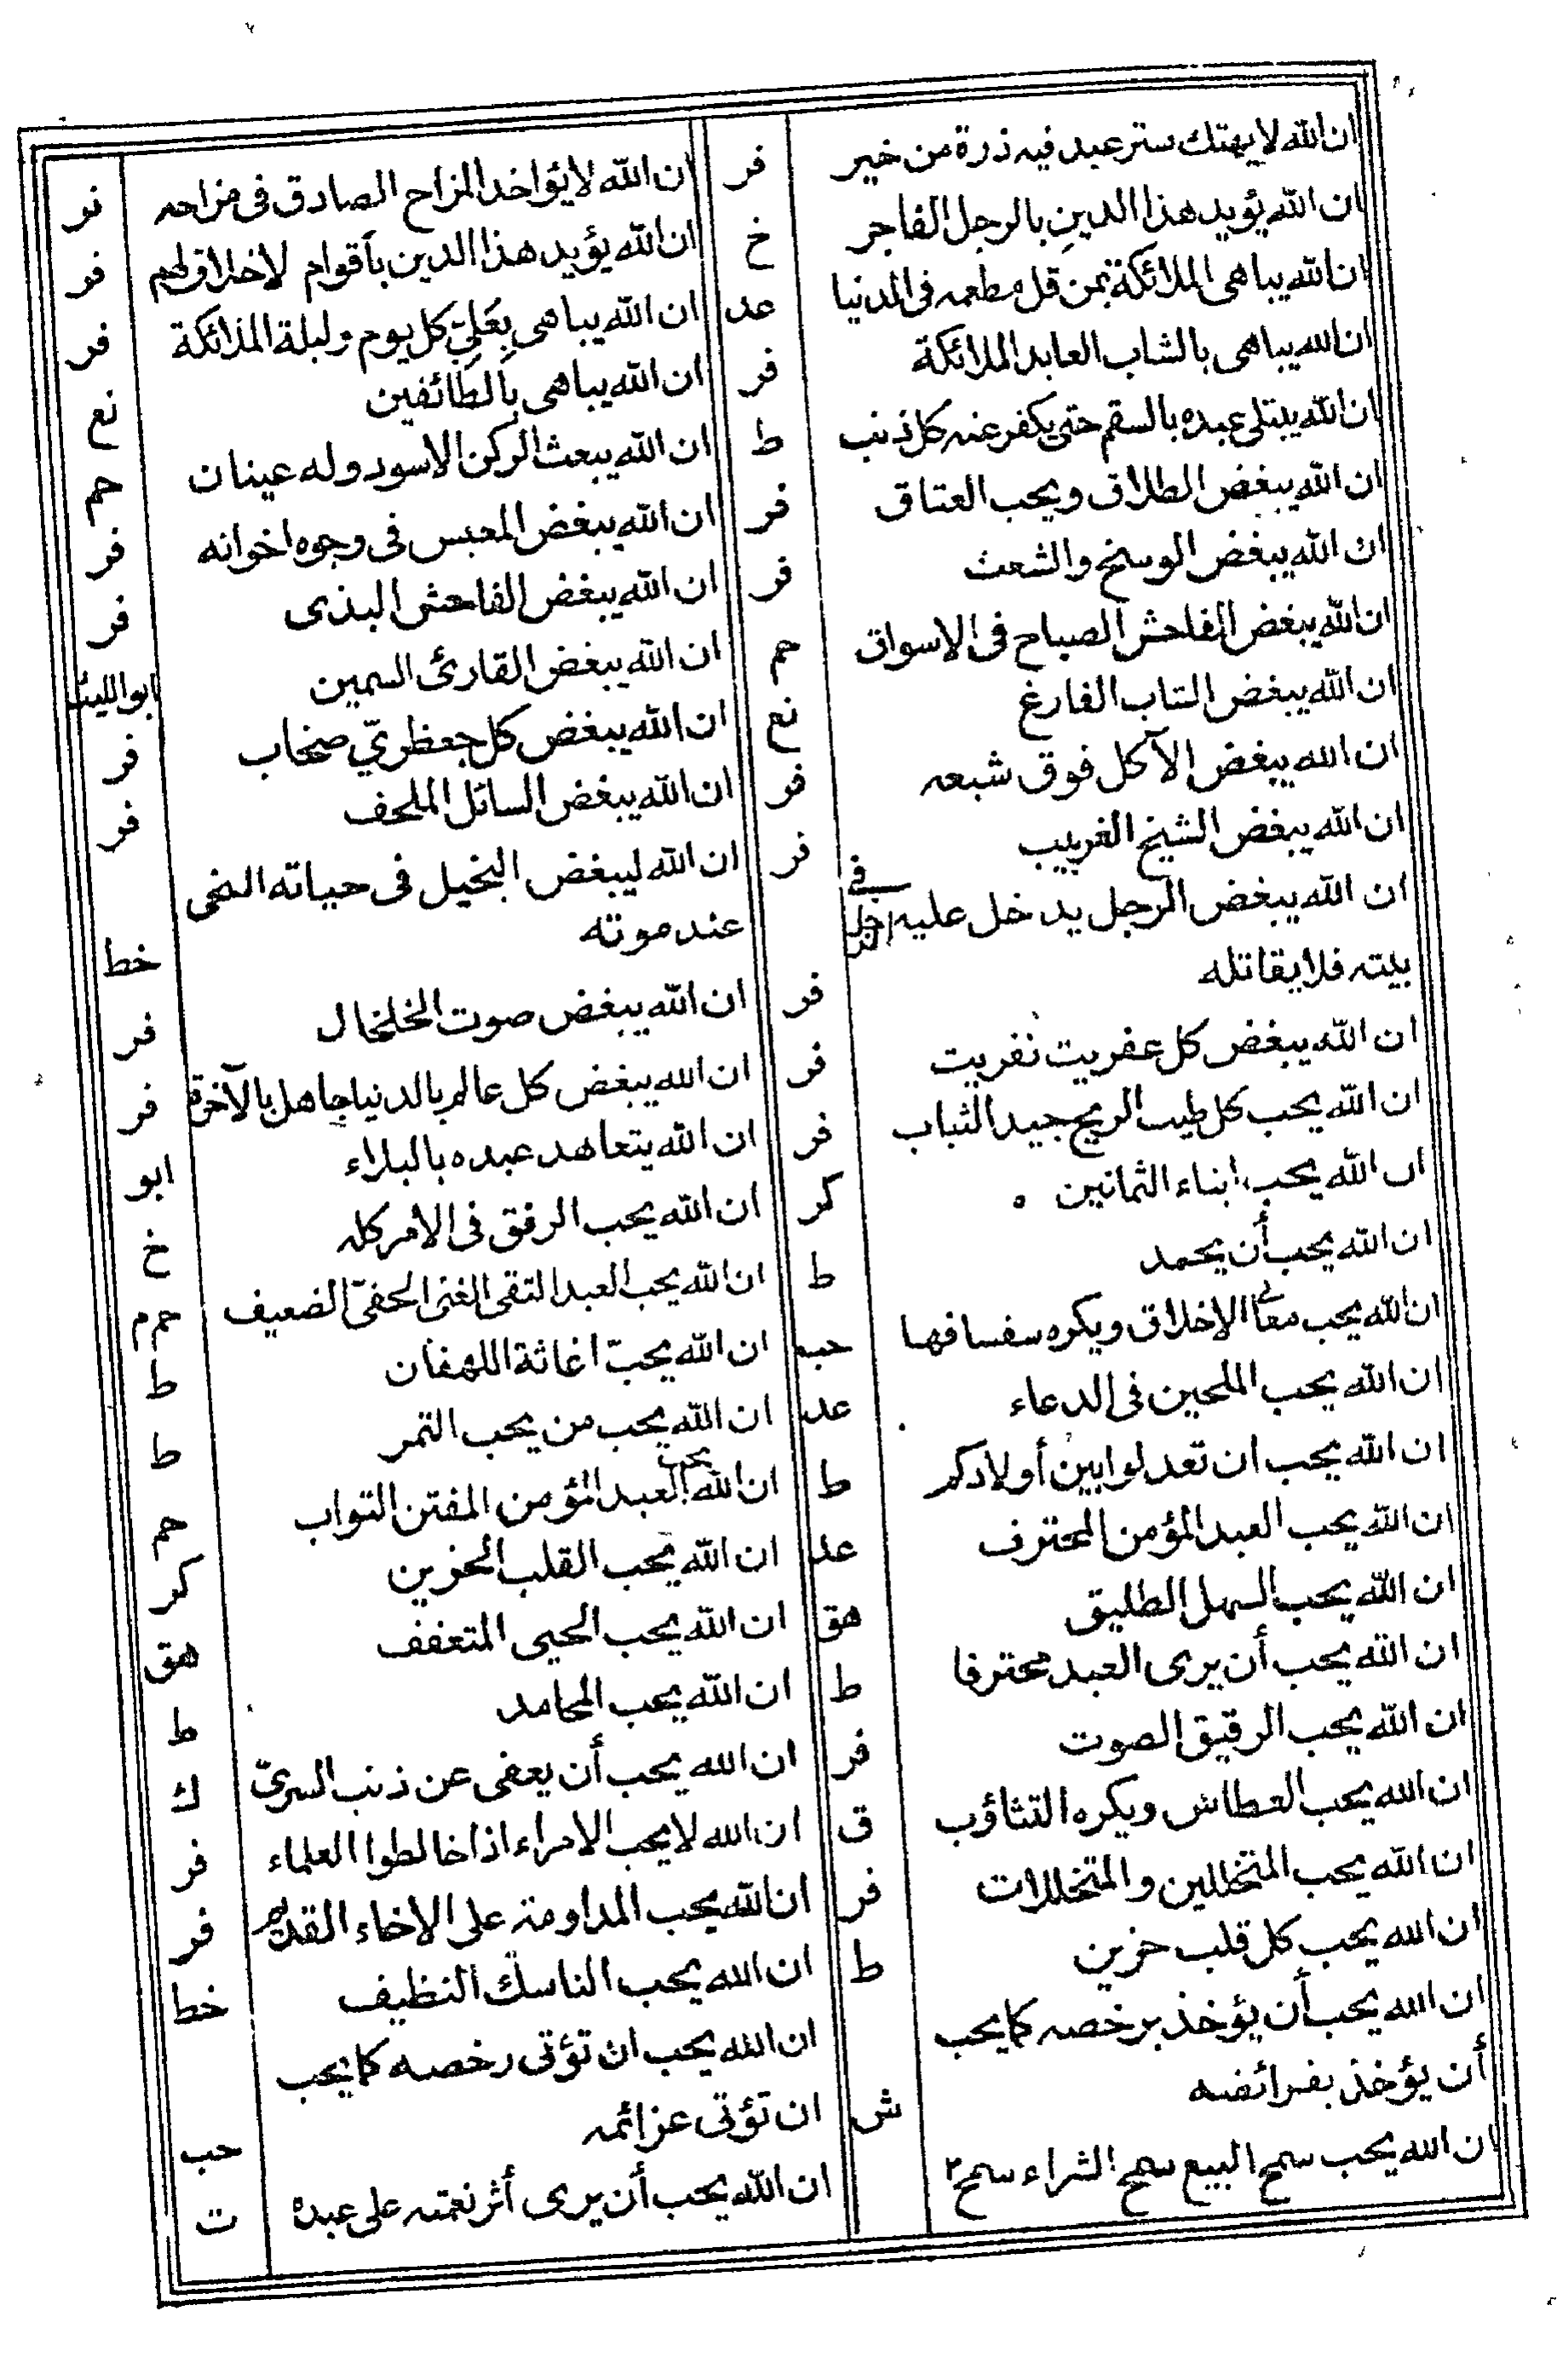 ان الله لا يهتك ستر عبد فيه ذرة من خير فر
ان الله يؤيد هذا الدين بالرجل الفاجر خ
ان الله يباهى الملائكة بمن قل مطعمه فى الدنيا عد
ان الله يباهى بالشاب العابد الملائكة فر
ان الله يبتلى عبده بالسقم حتى يكفر عنه كل ذنب ط
ان الله يبغض الطلاق ويحب العتاق فر
ان الله يبغض الوسخ والشعث فر
ان الله يبغض الفاحش الصياح فى الاسواق حم
ان الله يبغض الشاب الفارغ نع
ان الله يبغض الآكل فوق شبعه فر
ان الله يبغض الشيخ الغربيب فر
ان الله يبغض الرجل يدخل عليه الرجل فى
بيته فلا يقاتله فر
ان الله يبغض كل عفريت نفريت فر
ان الله يحب كل طيب الريح جيد الثياب فر
ان الله يحب ابناء الثمانين ه كر
ان الله يحب أن يحمد ط
ان الله يحب معالى الاخلاق ويكره سفسافها حب
ان الله يحب الملحين فى الدعاء عد
ان الله يحب ان تعدلوا بين أولادكم ط
ان الله يحب العبد المؤمن المحترف عد
ان الله يحب السهل الطليق هق
ان الله يحب أن يرى العبد محترفا ط
ان الله يحب الرقيق الصوت فر
ان الله يحب العطاش ويكره التثاؤب ق
ان الله يحب المتخللين والمتخللات فر
ان الله يحب كل قلب حزين ط
ان الله يحب أن يؤخذ برخصه كما يحب
أن يؤخذ بفرائضه ش
ان الله يحب سمح البيع سمح الشراء سمح ٢
ان الله لا يؤاخذ المزاح الصادق فى مزاحه فر
ان الله يؤيد هذا الدين بأقوام لاخلاق لهم فر
ان الله يباهى بعلىّ كل يوم وليلة الملائكة فر
ان الله يباهى بالطائفين نع
ان الله يبعث الركن الاسود وله عينان حم
ان الله يبغض المعبس فى وجوه اخوانه فر
ان الله يبغض الفاحش البذى فر
ان الله يبغض القارئ السمين ابو الليث
ان الله يبغض كل جعظرىّ صخاب فر
ان الله يبغض السائل الملحف فر
ان الله ليبغض البخيل فى حياته السخى
عند موته خط
ان الله يبغض صوت الخلخال فر
ان الله يبغض كل عالم بالدنيا جاهل بالآخرة فر
ان الله يتعاهد عبده بالبلاء ابو
ان الله يحب الرفق فى الامر كله خ
ان الله يحب العبد التقى الغنى الحفىّ الضعيف حم م
ان الله يحبّ اغاثة اللهفان ط
ان الله يحب من يحب التمر ط
ان الله يحب العبد المؤمن المفتن التواب حم
ان الله يحب القلب الحزين كر
ان الله يحب الحيى المتعفف هق
ان الله يحب المحامد ط
ان الله يحب أن يعفى عن ذنب السرىّ ك
ان الله لا يحب الامراء اذا خالطوا العلماء فر
ان الله يحب المداومة على الاخاء القديم فر
ان الله يحب الناسك النظيف خط
ان الله يحب ان تؤتى رخصه كما يحب
ان تؤتى عزائمه حب
ان الله يحب أن يرى أثر نعمته على عبده ت